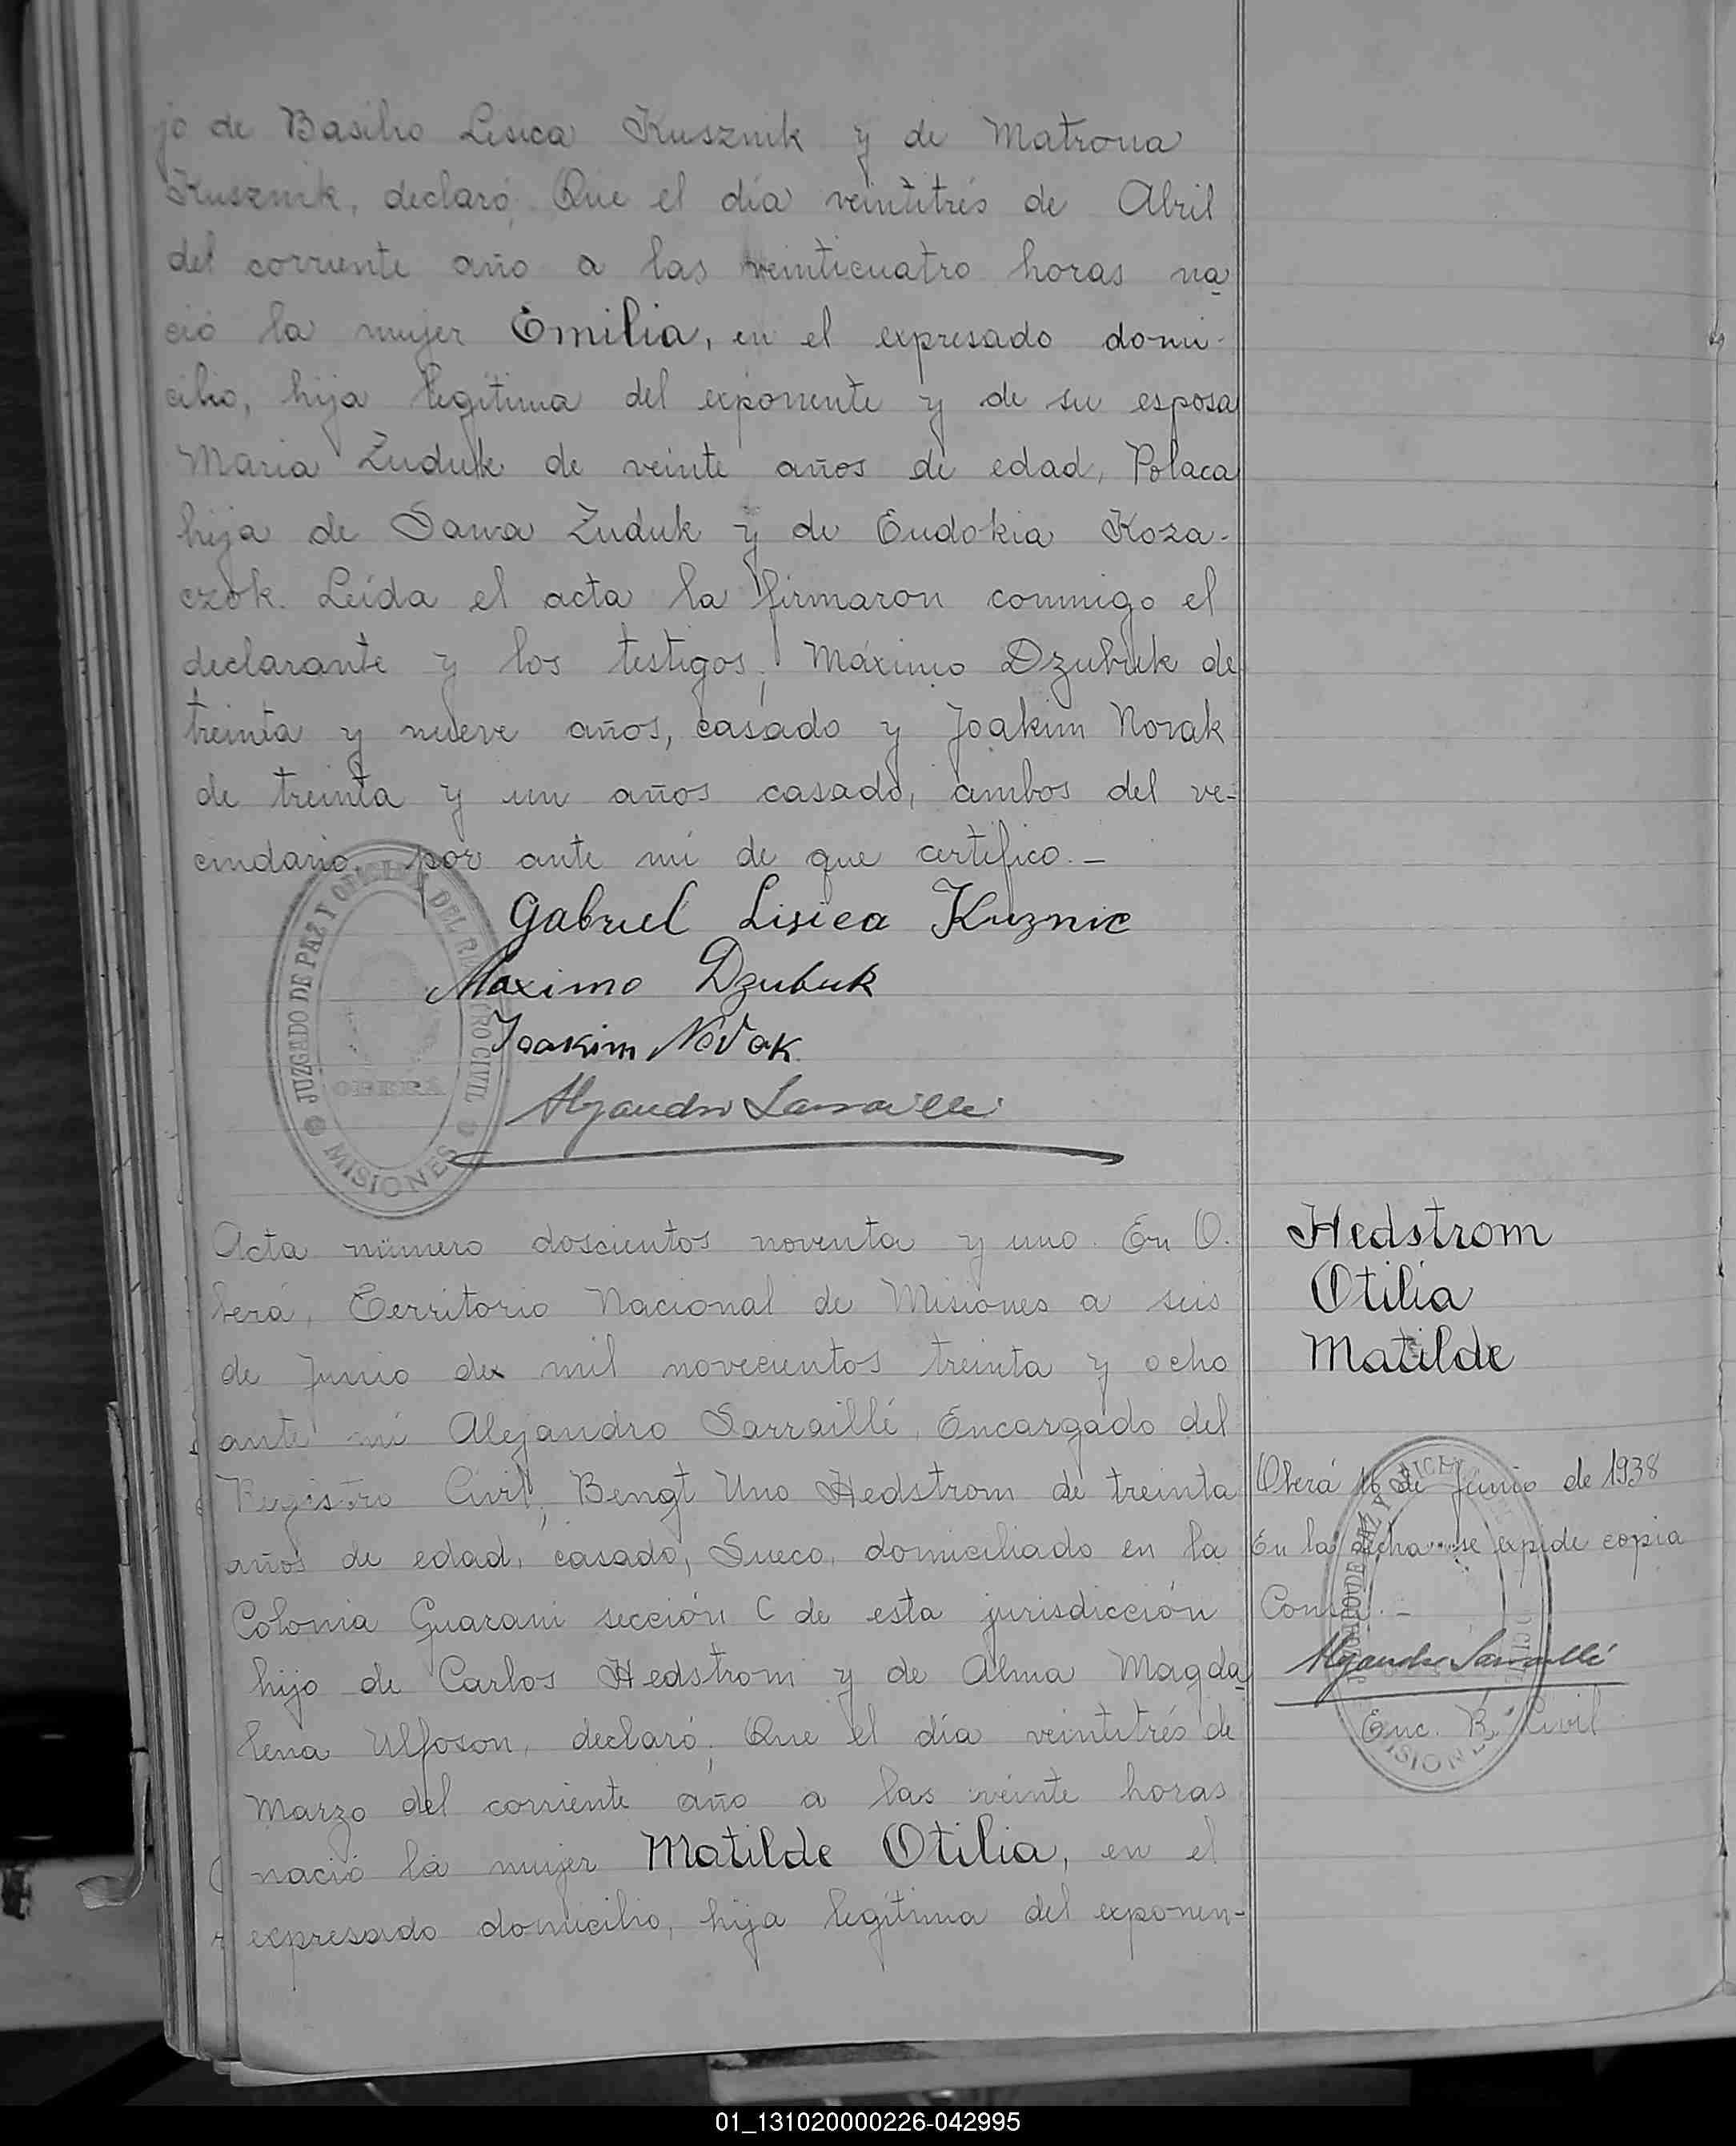 jo de Basilio Lisica Kusznik y de Matrona
Kusznik, declaró: Que el día veintitrés de Abril
del corriente año a las veinticuatro horas na
ció la mujer Emilia, en el expresado domi-
cilio, hija legítima del exponente y de su esposa
Maria Zuduk de veinte años de edad, Polaca
hija de Sawa Zuduk y de Eudokia Koza-
czok. Leída el acta la firmaron conmigo el
declarante y los testigos; Máximo Dzubuk de
treinta y nueve años, casado y Joakim Novak
de treinta y un años casado, ambos del ve-
cindario por ante mi de que certifico.-
Gabriel Lisica Kuznic
Maximo Dzubuk
Joakim Novak
Alejandro Sarraillé
JUZGADO DE PAZ Y OFICINA DEL REGISTRO CIVIL
OBERÁ
MISIONES
Acta número doscientos noventa y uno. En O.
berá, Territorio Nacional de Misiones a seis
de Junio de mil novecientos treinta y ocho
ante mi Alejandro Sarraillé, Encargado del
Registro Civil; Bengt Uno Hedstrom de treinta
años de edad, casado, Sueco, domiciliado en la
Colonia Guarani sección C de esta jurisdicción
hijo de Carlos Hedstrom y de Alma Magda
lena Ulfoson, declaró; Que el día veintitrés de
Marzo del corriente año a las veinte horas
nació la mujer Matilde Otilia, en el
expresado domicilio, hija legítima del exponen-
Hedstrom
Otilia
Matilde
Oberá 16 de Junio de 1938
En la fecha se expide copia
Conste.-
Alejandro Sarraillé
Enc. R. Civil
MISIONES
01_131020000226-042995